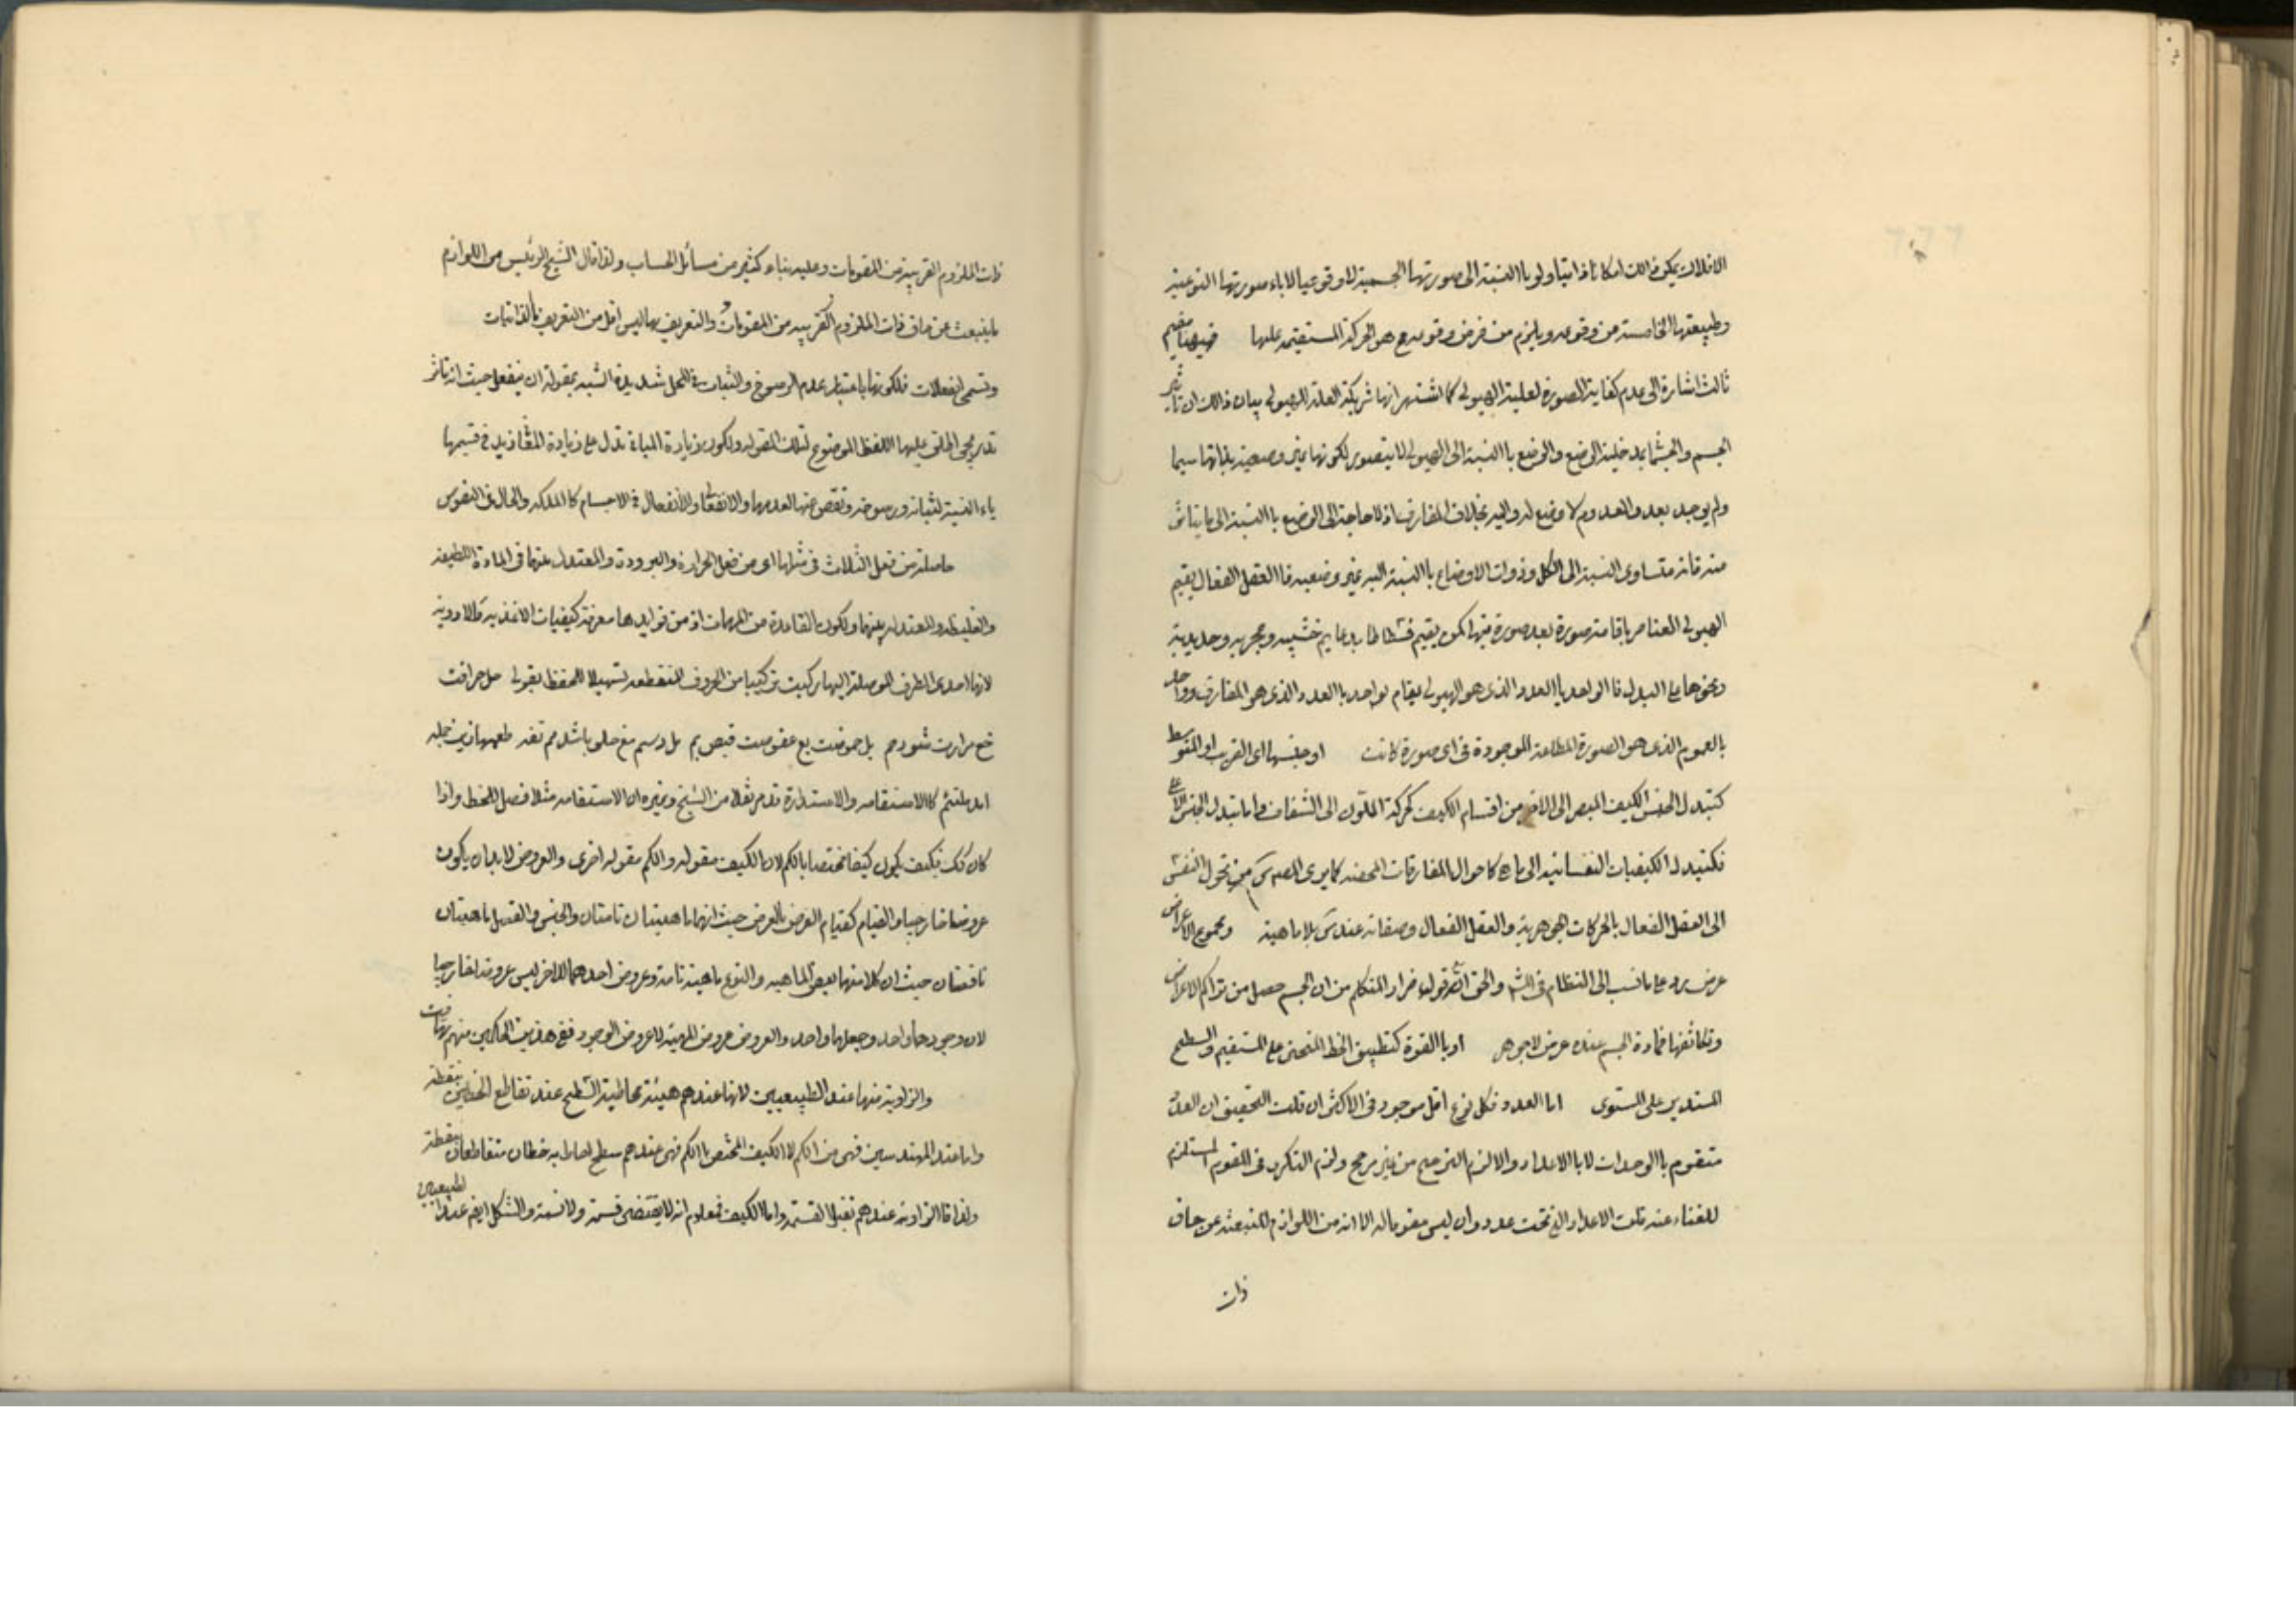 الافلاك يمكن ذالك امكانا ذاتيا ولو باالنسبة الى صورتها الجسمية لا وقوعيا لاباء صورتها النوعية
وطبيعتها الخامسة من وقوعه ويلزم من فرض وقوعه مح هو الحركة المستقيمة عليها
ثالث اشارة الى عدم كفاية الصورة لعلية الهيولى كما اشتهر انها شريكة العلة للهيولى بيان ذالك ان تاثير
الجسم والجسمانى بمدخلية الوضع والوضع باالنسبة الى الهيولى لا يتصور لكونها غير وضعية بذاتها سيما
ولم يوجد بعد والمعدوم لا وضع له واليه بخلاف المفارق اذ لا حاجة الى الوضع باالنسبة الى ما يتاثر
منه فانه متساوى النسبة الى الكل وذوات الاوضاع باالنسبة اليه غير وضعيه فاالعقل الفعال يقيم
الهيولى العناصر باقامة صورة بعد صورة فيها كمن يقيم فسطاطا بدعايم خشبيه وحجريه وحديدية
ونحوها على البدل فاالواحد باالعدد الذى هو الهيولى يقام بواحد باالعدد الذى هو المفارق وواحد
بالعموم الذى هو الصورة المطلقة الموجودة فى اى صورة كانت او جنسها اى القريب او المتوسط
كتبدل الجنس الكيف المبصر الى الاخر من اقسام الكيف كحركة المتلون الى الشفاف واما تبدل الجنس الاعلى
فكتبدل الكيفيات النفسانيه الى ما كاحوال المفارقات المحضه كما يرى المص من تحول النفس
الى العقل الفعال بالحركات الجوهرية والعقل الفعال وصفاته عنده بلا ماهية ومجموع الاعراض
عرض رد على ما نسب الى النظام والحق انه قول ضرار المتكلم من ان الجسم حصل من تراكم الاعراض
وتكاثفها فمادة الجسم عنده عرض لا جوهر او باالقوة كتطبيق الخط المنحنى على المستقيم والسطح
المستدير على المستوى اما العدد فكل نوع اقل موجود فى الاكثر ان قلت التحقيق ان العدد
متقوم باالوحدات لا باالاعداد والا لزم الترجيح من غير مرجح ولزم التكرر فى المقوم المستلزم
للغناء عنه قلت الاعداد التى تحت عدد وان ليس مقوما له الا انه من اللوازم المنبعثة عن حاق
ذات
ذات الملزوم القريبة من المقومات وعليه بناء كثير من مسائل الحساب ولذا قال الشيخ الرئيس من اللوازم
ما ينبعث عن حاق ذات الملزوم القريبه من المقومات والتعريف بها ليس اقل من التعريف باالذاتيات
وتسمى انفعالات فلكونها باعتبار عدم الرسوخ والثبات فى المحل شديدة الشبه بمقولة ان ينفعل حيث انه تاثر
تدريجى اطلق عليها اللفظ الموضوع لتلك المقوله ولكون زيادة المبانى تدل على زيادة المعانى زيد فى قسيمها
ياء النسبة لثباته ورسوخه ونقص عنها لعدمها والانفعالى والانفعال فى الاجسام كاالملكه والحال فى النفوس
حاصلة من فعل الثلاث فى مثلها اى من فعل الحرارة والبرودة والمعتدل بينهما فى المادة اللطيفه
والغليظه والمعتدله بينهما ولكون القاعدة من المهمات اذ من فوايدها معرفة كيفيات الاغذيه والادوية
لانها احدى الطرق الموصلة اليها ركبت تركيبا من الحروف المنقطعه تسهيلا للحفظ بقولى حل حرافت
مرارت شورهم بل حموضت بع عفوصت قبض بم مل دسم مغ حلو باشد مم تفه طعمها زين جمله
كاالاستقامه والاستدارة قد مر نقلا من الشيخ وغيره ان الاستقامه مثلا فصل للخط واذا
كان كك فكيف يكون كيفا مختصا باالكم لان الكيف مقوله والكم مقوله اخرى والعروض لا بد ان يكون
عروضا خارجيا والقيام كقيام العرض بالعرض حيث انهما ماهيتان تامتان والجنس والفصل ماهيتان
ناقصتان حيث ان كلا منهما بعض الماهيه والنوع ماهية تامة وعروض احدهما للاخر ليس عروضا خارجيا
لان وجودهما واحد وجعلهما واحد والعروض عروض المهية لا عروض الوجود ففى هذين الحكمين منهم تهافت
والزاوية منها عند الطبيعيين لانها عندهم هيئة محاطية السطح عند تقاطع الخطين بنقطة
واما عند المهندسين فهى من الكم لا الكيف المختص باالكم فهى عندهم سطح احاط به خطان متقاطعان بنقطة
ولذا قاالزاوية عندهم تقبل القسمة واما الكيف فمعلوم انه لا يقتضى قسمة ولا نسبة والشكل ايضم عند الطبيعيين